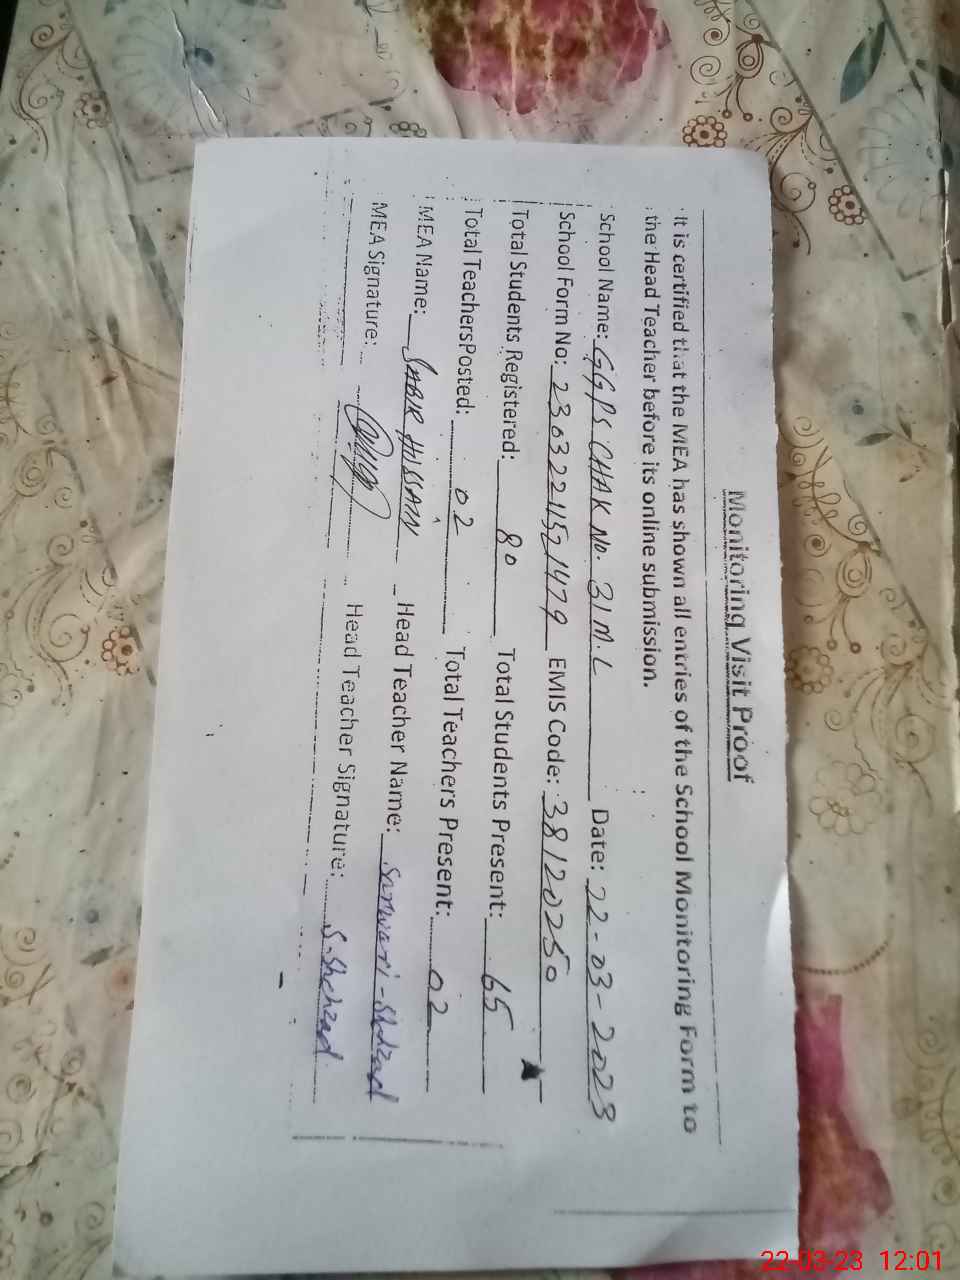 Monitoring Visit Proof
It is certified that the MEA has shown all entries of the School Monitoring Form to
the Head Teacher before its online submission.
School Name: GGPS CHAK No. 31 M.L Date: 22-03-2023
School Form No: 2303221521479 EMIS Code: 38120250
Total Students Registered: 80 Total Students Present: 65
Total TeachersPosted: 02 Total Teachers Present: 02
MEA Name: SABIR HUSSAIN Head Teacher Name: Shehzad
MEA Signature: Head Teacher Signature: S. Shehzad
22-03-23 12:01